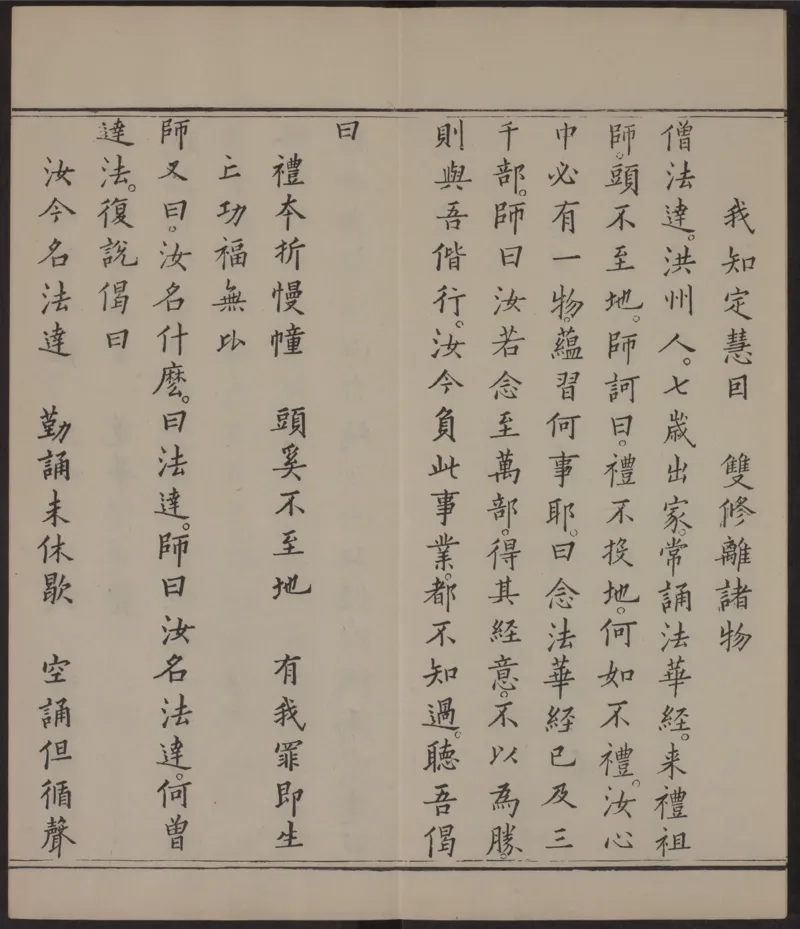 我知定慧因　雙修離諸物
僧法達。洪州人。七歲出家。常誦法華經。来禮祖
師。頭不至地。師訶曰。禮不投地。何如不禮。汝心
中必有一物。蘊習何事耶。曰念法華經已及三
千部。師曰汝若念至萬部。得其經意。不以為勝。
則與吾偕行。汝今負此事業。都不知過。聽吾偈
曰
禮本折慢幢　頭奚不至地　有我罪即生
亡功福無比
師又曰。汝名什麼。曰法達。師曰汝名法達。何曾
達法。復說偈曰
汝今名法達　勤誦未休歇　空誦但循聲